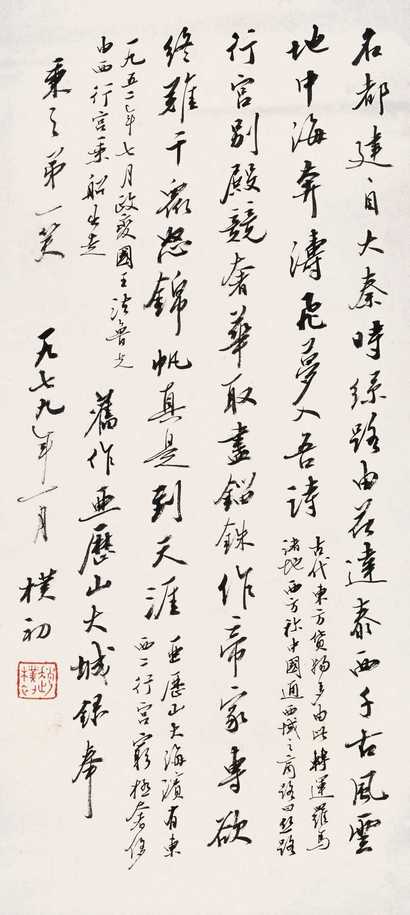 名都建自大秦时丝路由兹達泰西千古風雲
地中海奔濤飛夢入吾詩
古代東方貨物多由此轉運羅馬
諸地西方称中國通西域之商路曰丝路
行宫别殿競奢華取盡錙銖作帝家專欲
终難干衆怒錦帆真是到天涯
亜歷山大海濱有東
西二行宫窮極奢侈
一九五二年七月政變國王法魯克
由西行宫乘船出走
舊作亜歷山大城録奉
秉之弟一笑
一九七九年一月 樸初
趙樸初